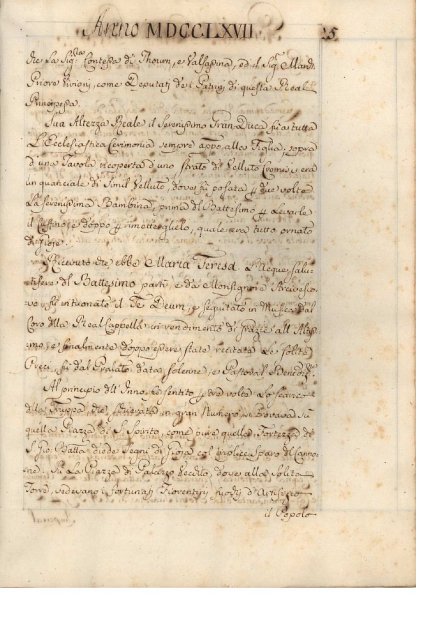 Anno MDCCLXVII
25.
la Sig.ra Contessa di Thourn, e Valsassina, ed il Sig.r March.
Priore Rinoni, come Deputati de i Refugi di questa Real
Principessa.
Sua Altezza Reale il Serenissimo Gran Duca fù a tutta
L'Ecclesiastica Ceremonia sempre appo alla Figlia, sopra
d'una Tavola ricoperta d'uno strato di Velluto Cremisi, era
un guanciale di Simil Velluto, dove fù posata due volte
La Serenissima Bambina, prima del Battesimo p Levarle
il e doppo p rimetterglielo, quale era tutto ornato
di gioje.
Ricevuto che ebbe Maria Teresa L'Acque salu=
tifere del Battesimo partì, e da Monsignore Arcivesco=
vo fù intuonato il Te Deum, e seguitato in Musica dal
Coro della Real Cappella in rendimento di grazie all' Altis=
simo, e finalmente doppo essere state recitate Le solite
Preci, fù dal Prelato data solenne, e Pastoral Benediz.e
Al principio dell' Inno, si sentito p tre volte Lo scarico
della Truppa, che, squadrata in gran Numero, si trovava su
quella Piazza di S. Spirito, come pure quella Fortezza di
S. Gio: Batta diede segni di gioia col triplice sparo del Canno=
ne. Su La Piazza di Palazzo Vecchio, dove alla Solita
Torre, sedevano i Fortunati Fiorentini, d'Artifizio
il Popolo